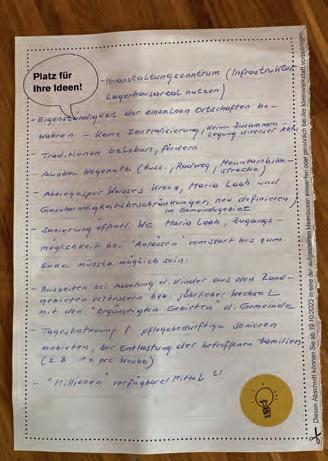 Platz für
Ihre Ideen!
- Veranstaltungszentrum (Infrastruktur
Lagerhausareal nutzen)
- Eigenständigkeit der einzelnen Ortschaften be-
wahren - keine Zentralisierung, keine Zusammen-
legung diverser
Traditionen beleben, fördern
- Ausbau Wegenetz (Fuss-, Radweg, Mountainbike-
strecke)
- Abbiegespur Weisses Kreuz, Maria Laah und
Geschwindigkeitsbeschränkungen, neu definieren
im Gemeindegebiet
- Sanierung öffentl. WC Maria Laah, Zugangs-
möglichkeit bei Anlässen von Start bis zum
Ende müsste möglich sein.
Buszeiten bei Abholung d. Kinder aus den Rand-
gebieten verbessern bzw. jährlicher Wechsel
mit den "begünstigten Gebieten" d. Gemeinde
Tagesbetreuung f. pflegebedürftige Senioren
anbieten, zur Entlastung der betroffenen Familien
(z.B. 1x pro Woche)
- "Millionen" verfügbare Mittel
Diesen Abschnitt können Sie ab 19.10.2020 in eine der aufgestellten Ideenboxen einwerfen oder persönlich bei der Ideenwerkstatt vorbeibringen.